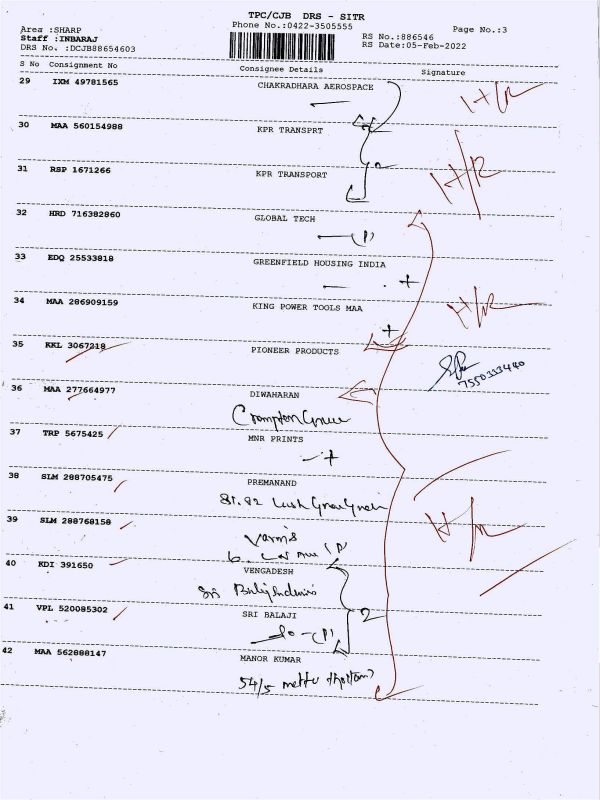 TPC/CJB DRS - SITR
Area :SHARP
Phone No.:0422-3505555
Page No.:3
Staff :INBARAJ
RS No.:886546
DRS No. :DCJB88654603
RS Date:05-Feb-2022
S No Consignment No Consignee Details Signature
29 IXM 49781565 CHAKRADHARA AEROSPACE
H/R
30 MAA 560154988 KPR TRANSPRT
31 RSP 1671266 KPR TRANSPORT
H/R
32 HRD 716382860 GLOBAL TECH
(P)
33 EDQ 25533818 GREENFIELD HOUSING INDIA
34 MAA 286909159 KING POWER TOOLS MAA
H/R
35 KKL 3067218 PIONEER PRODUCTS
7550333440
36 MAA 277664977 DIWAHARAN
Crompton
37 TRP 5675425 MNR PRINTS
38 SLM 288705475 PREMANAND
81.82
H/R
39 SLM 288768158
40 KDI 391650 VENGADESH
Sri
41 VPL 520085302 SRI BALAJI
2
do - (P)
42 MAA 562888147 MANOR KUMAR
54/5 mettu thottam